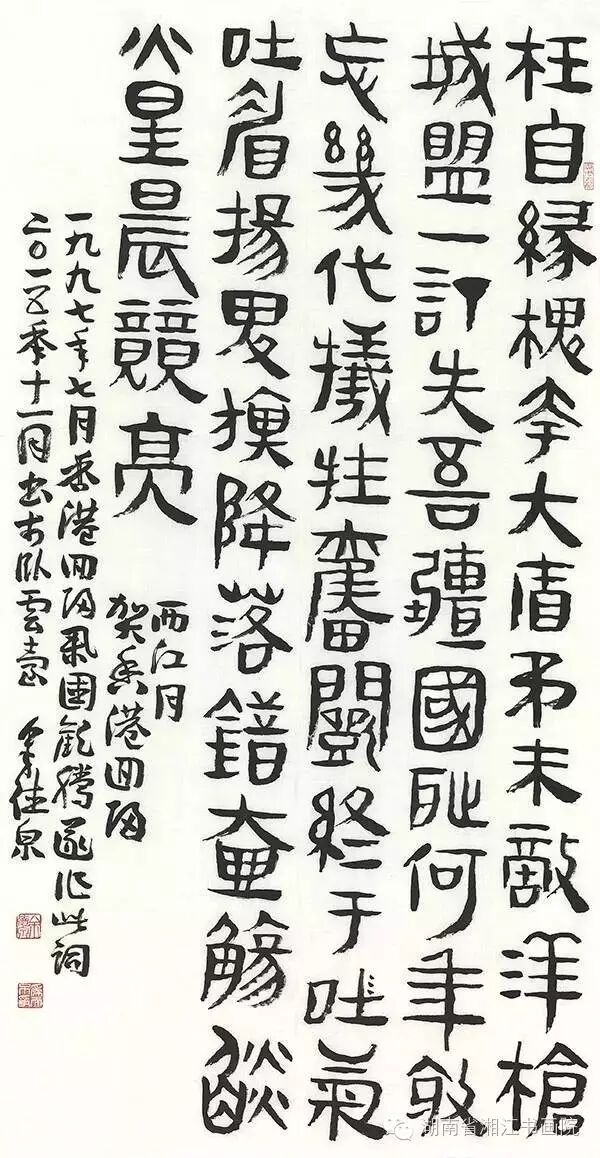 枉自緣槐夸大盾矛未敵洋槍
城盟一訂失吾疆國恥何年敢
忘幾代犧牲奮鬪終于吐氣
吐眉揚換降落錯觴
火星晨競亮
西江月
賀香港回歸
一九九七年七月香港回歸舉國歡騰遂作此詞
二〇一五年十一月書於臥雲壹 余德泉
湖南省湘江书画院